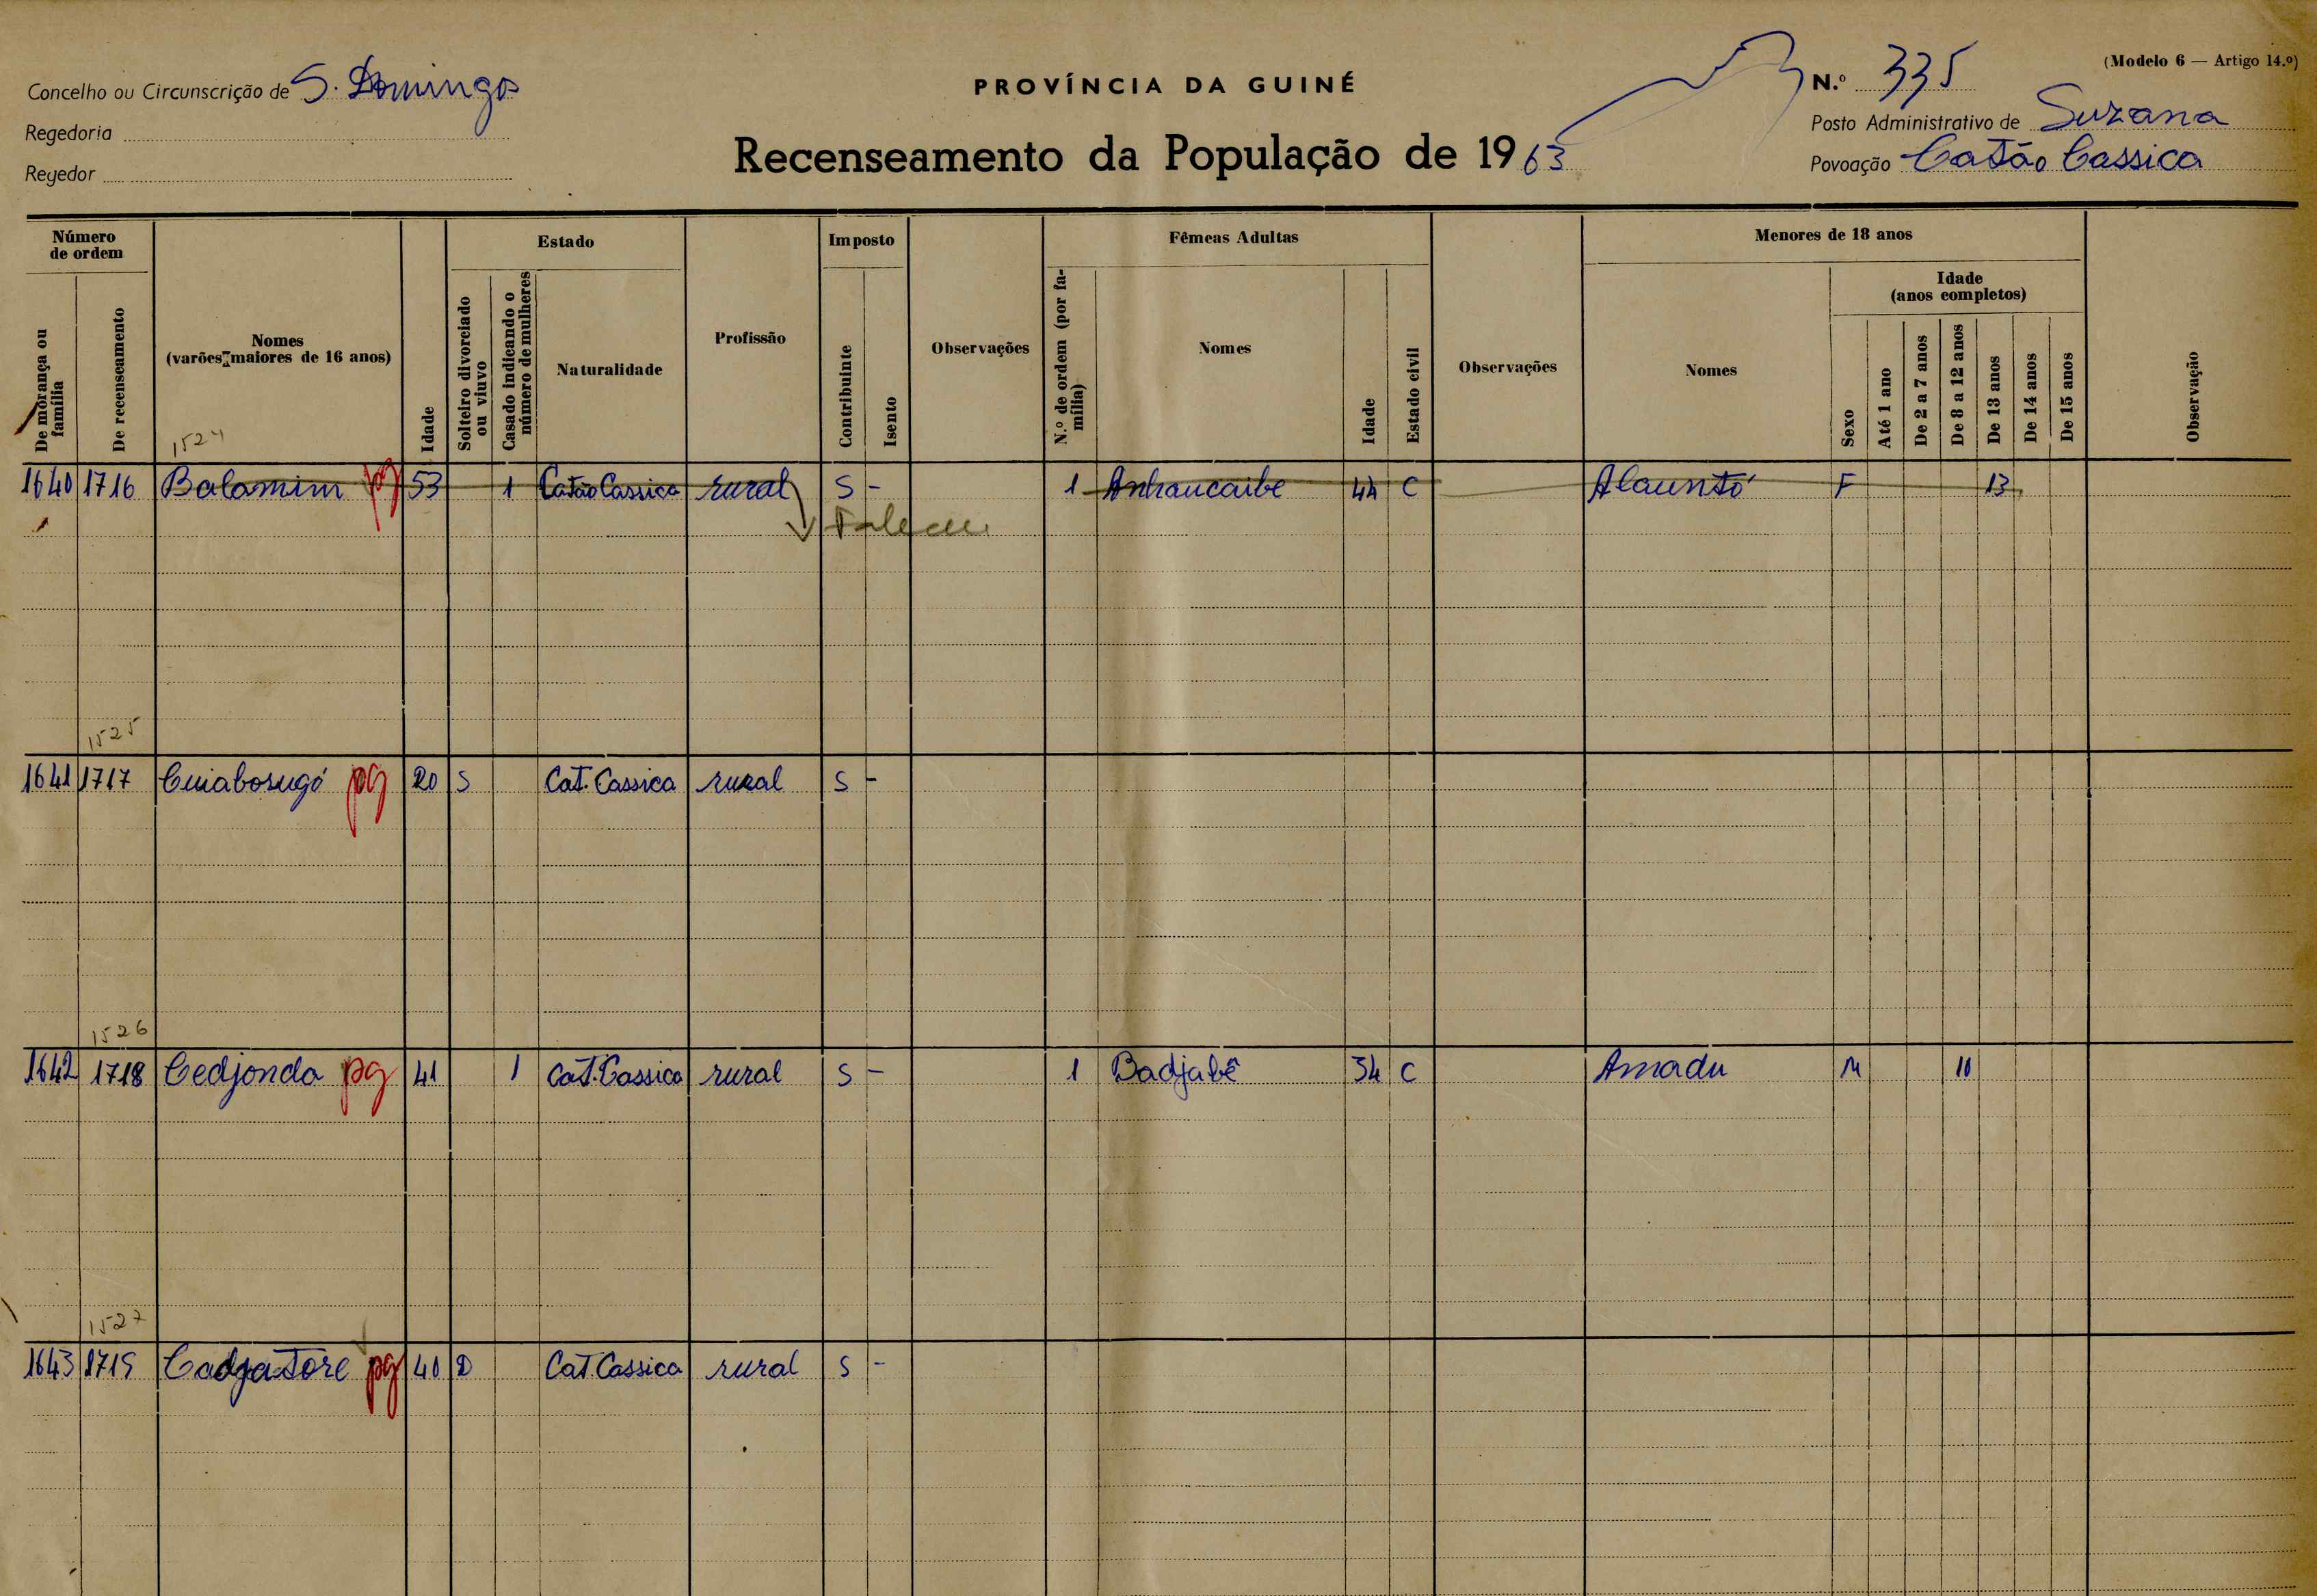 (Modelo 6 — Artigo 14.º)
Concelho ou Circunscrição de S. Domingos
PROVÍNCIA DA GUINÉ
N.º 335
Regedoria
Posto Administrativo de Suzana
Recenseamento da População de 1963
Regedor
Povoação Catão Cassica
Número de ordem
Estado
Imposto
Fêmeas Adultas
Menores de 18 anos
De morança ou família
De recenseamento
Nomes (varões maiores de 16 anos)
Idade
Solteiro divorciado ou viuvo
Casado indicando o número de mulheres
Naturalidade
Profissão
Contribuinte
Isento
Observações
N.º de ordem (por família)
Nomes
Idade
Estado civil
Observações
Nomes
Sexo
Idade (anos completos)
Até 1 ano
De 2 a 7 anos
De 8 a 12 anos
De 13 anos
De 14 anos
De 15 anos
Observação
1524
1640 1716 Balamim pg 53 1 Catão Cassica rural S - 1 Anhaucaibe 44 C Alaunto F 13
1525
1641 1717 Cuiaborugó pg 20 S Cat. Cassica rural S -
1526
1642 1718 Cedjonda pg 41 1 Cat. Cassica rural S - 1 Badjabê 34 C Amadu M 10
1527
1643 1719 Cadjatore pg 40 D Cat Cassica rural S -